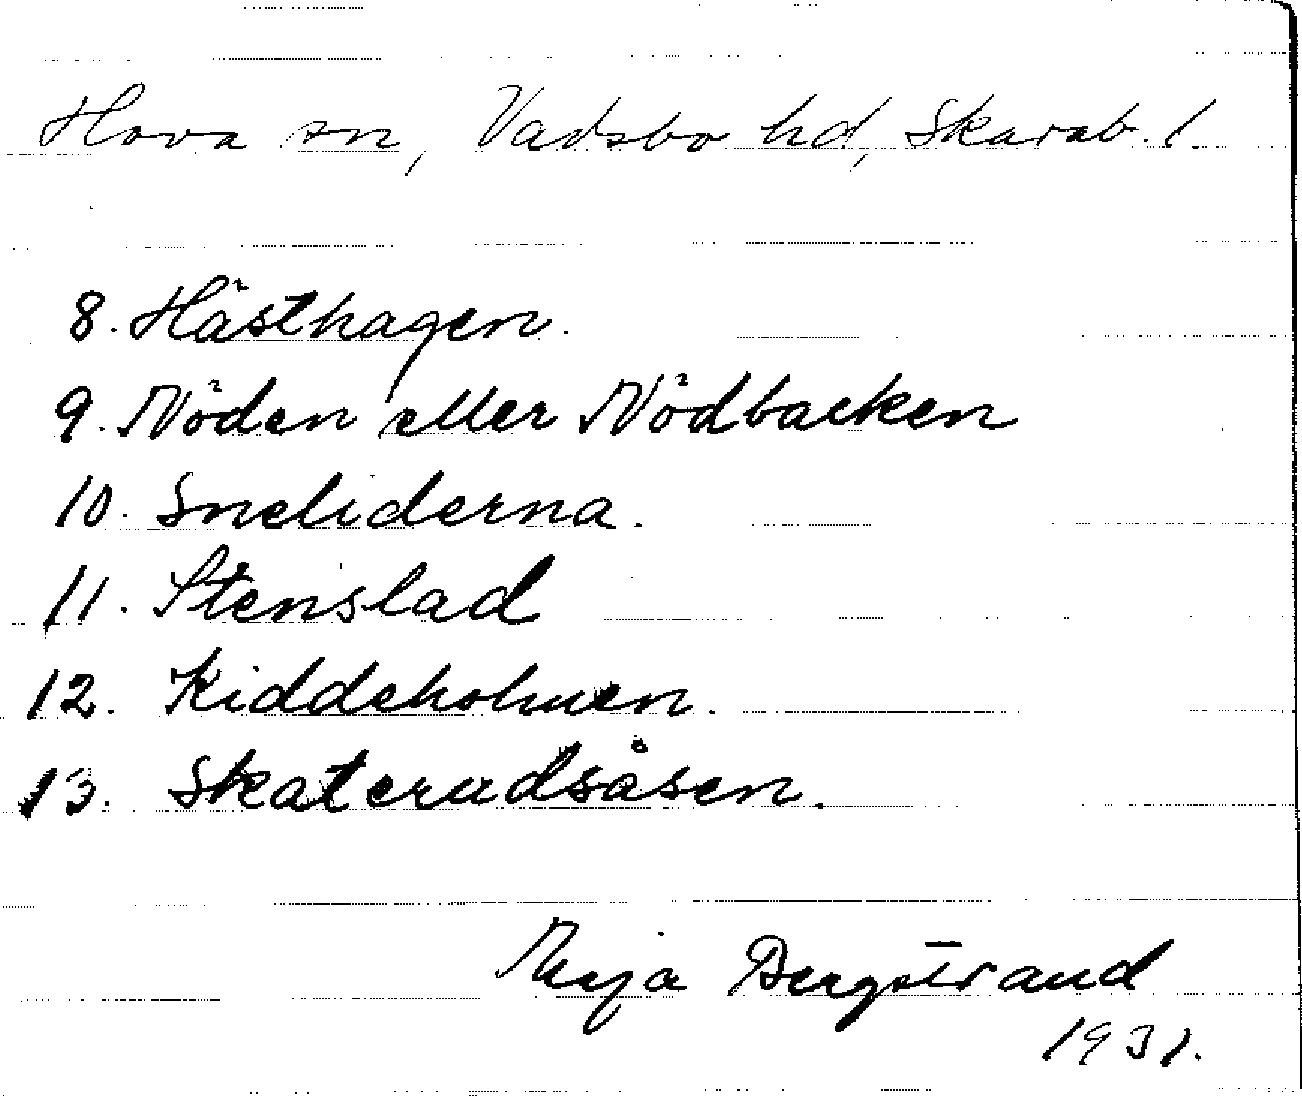 Hova sn, Vadsbo hd, Skarab. l.
8. Hästhagen.
9. Nöden eller Nödbacken
10. Sneliderna.
11. Stenslad
12. Kiddeholmen.
13. Skaterudsåsen.
Maja Bergstrand
1931.